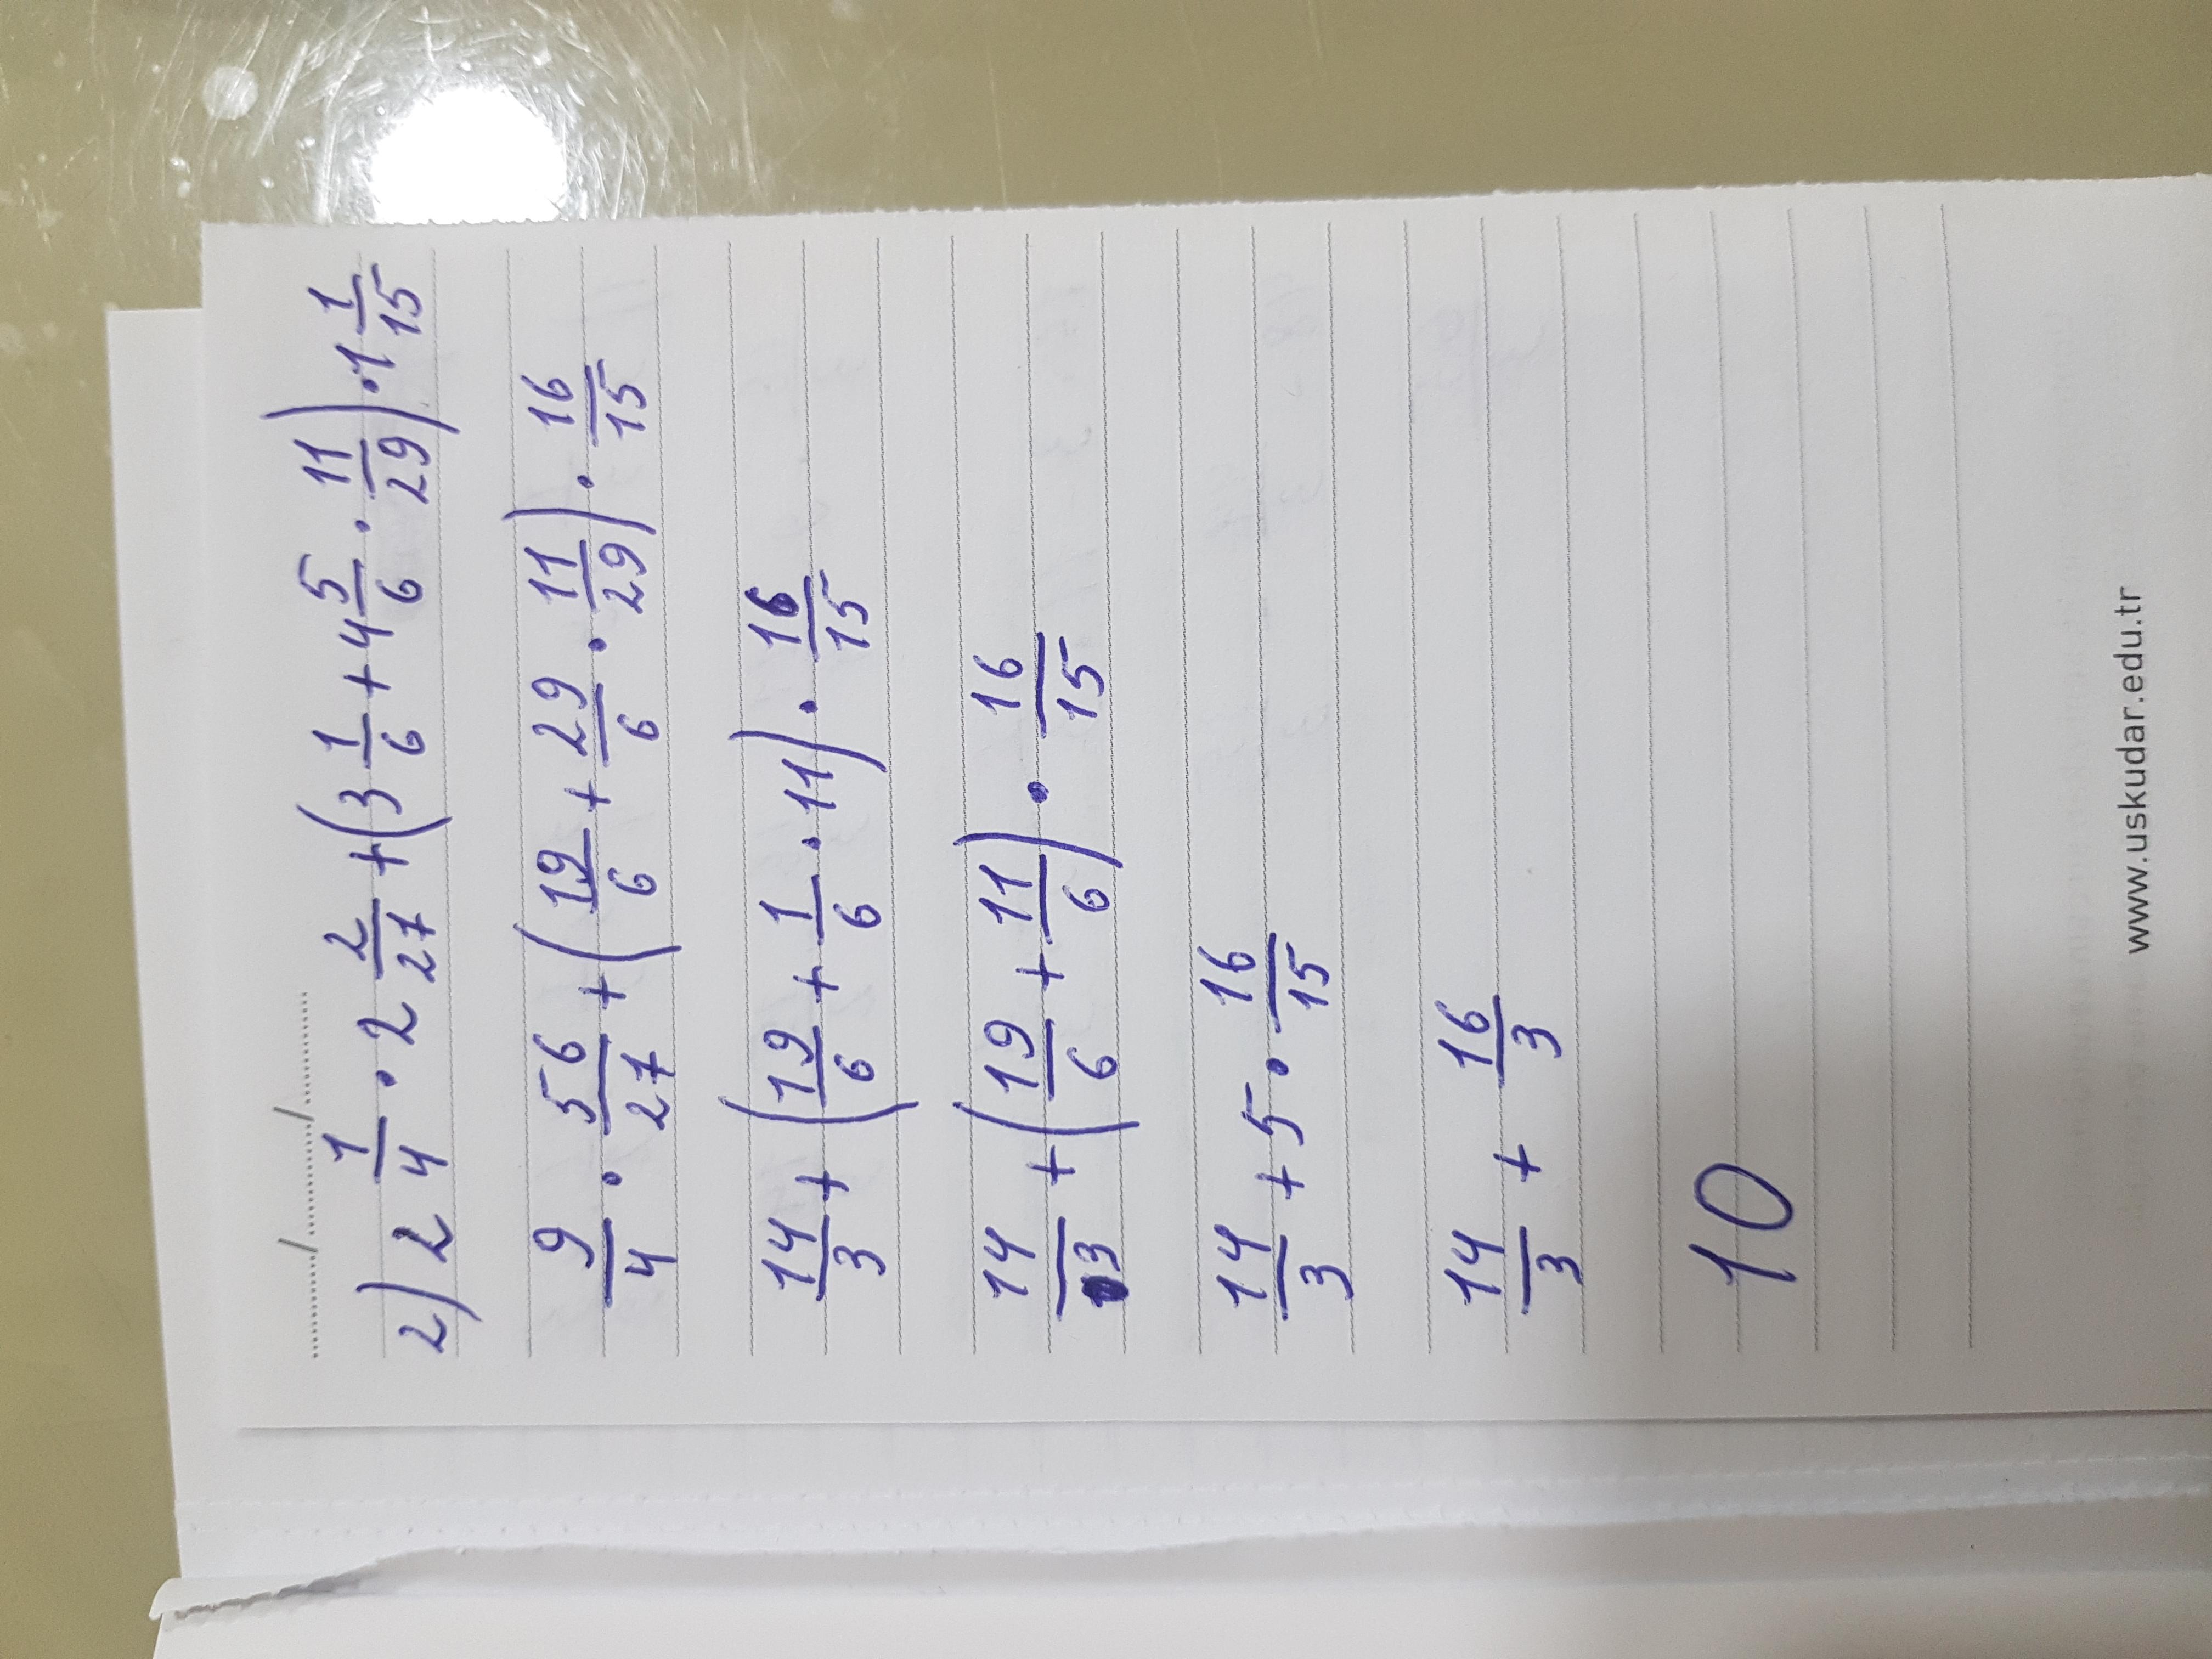 ........../........../..........
2) 2 1/4 · 2 2/27 + (3 1/6 + 4 5/6 · 11/29) · 1 1/15
9/4 · 56/27 + (19/6 + 29/6 · 11/29) · 16/15
14/3 + (19/6 + 1/6 · 11) · 16/15
14/3 + (19/6 + 11/6) · 16/15
14/3 + 5 · 16/15
14/3 + 16/3
10
www.uskudar.edu.tr